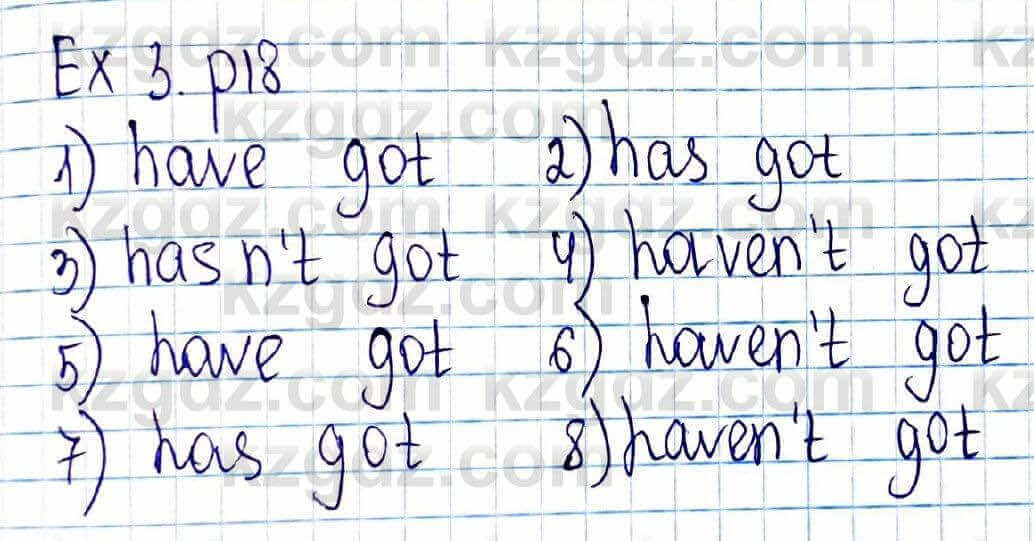 Ex 3. p18
1) have got 2) has got
3) hasn't got 4) haven't got
5) have got 6) haven't got
7) has got 8) haven't got
kzgdz.com